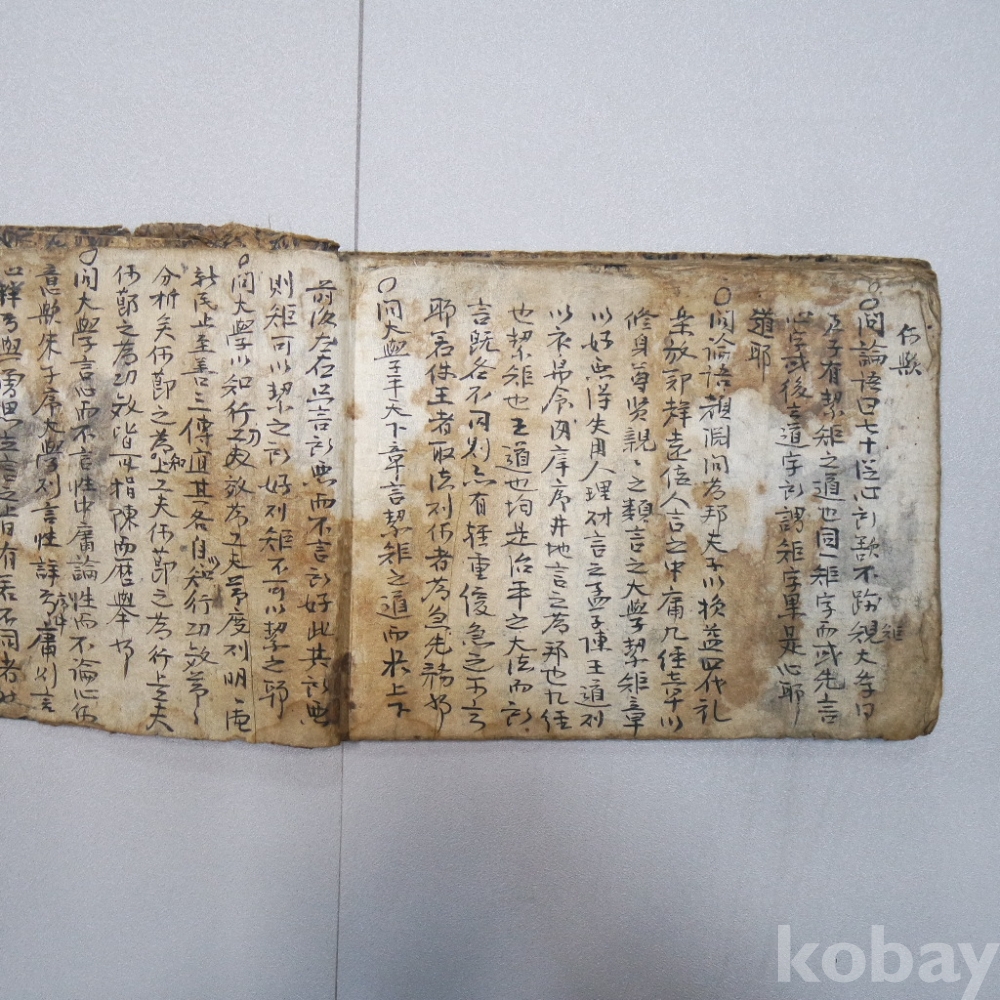 何歟
〇問論語曰七十從心所欲不踰矩大學曰
君子有絜矩之道也同一矩字而或先言
心字或後言道字所謂矩字單是心耶
道耶
〇問論語顔淵問爲邦夫子以損益四代礼
樂放鄭聲遠佞人言之中庸九經章以
修身尊賢親〻之類言之大學絜矩章
以好惡得失用人理財言之孟子陳王道則
以衣帛庠序井地言之爲邦也九經
也絜矩也王道也均是治平之大法而所
言旣各不同則亦有輕重緩急之可言
耶若使王者取法則何者爲急先務耶
〇問大學平天下章言絜矩之道而於上下
前後左右只言所惡而不言所好此其所惡
則矩可以絜之所好則矩不可以絜之耶
〇問大學以知行功效爲工夫等度則明德
新民止至善三傳宜其各自知行功效等〻
分析矣何節之爲知上工夫何節之爲行上工夫
何節之爲功效皆可指陳而歷擧耶
〇問大學言心而不言性中庸論性而不論心何
意歟朱子序大學則言性詳序中庸則言